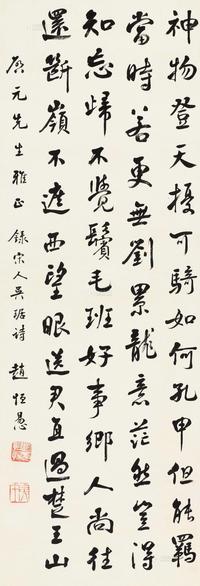 神物登天擾可騎如何孔甲但能羈
當時若更無劉累龍意茫然豈得
知忘歸不覺鬢毛班好事鄉人尚往
還斷嶺不遮西望眼送君直過楚王山
启元先生雅正 錄宋人吳琚詩 趙恒惕